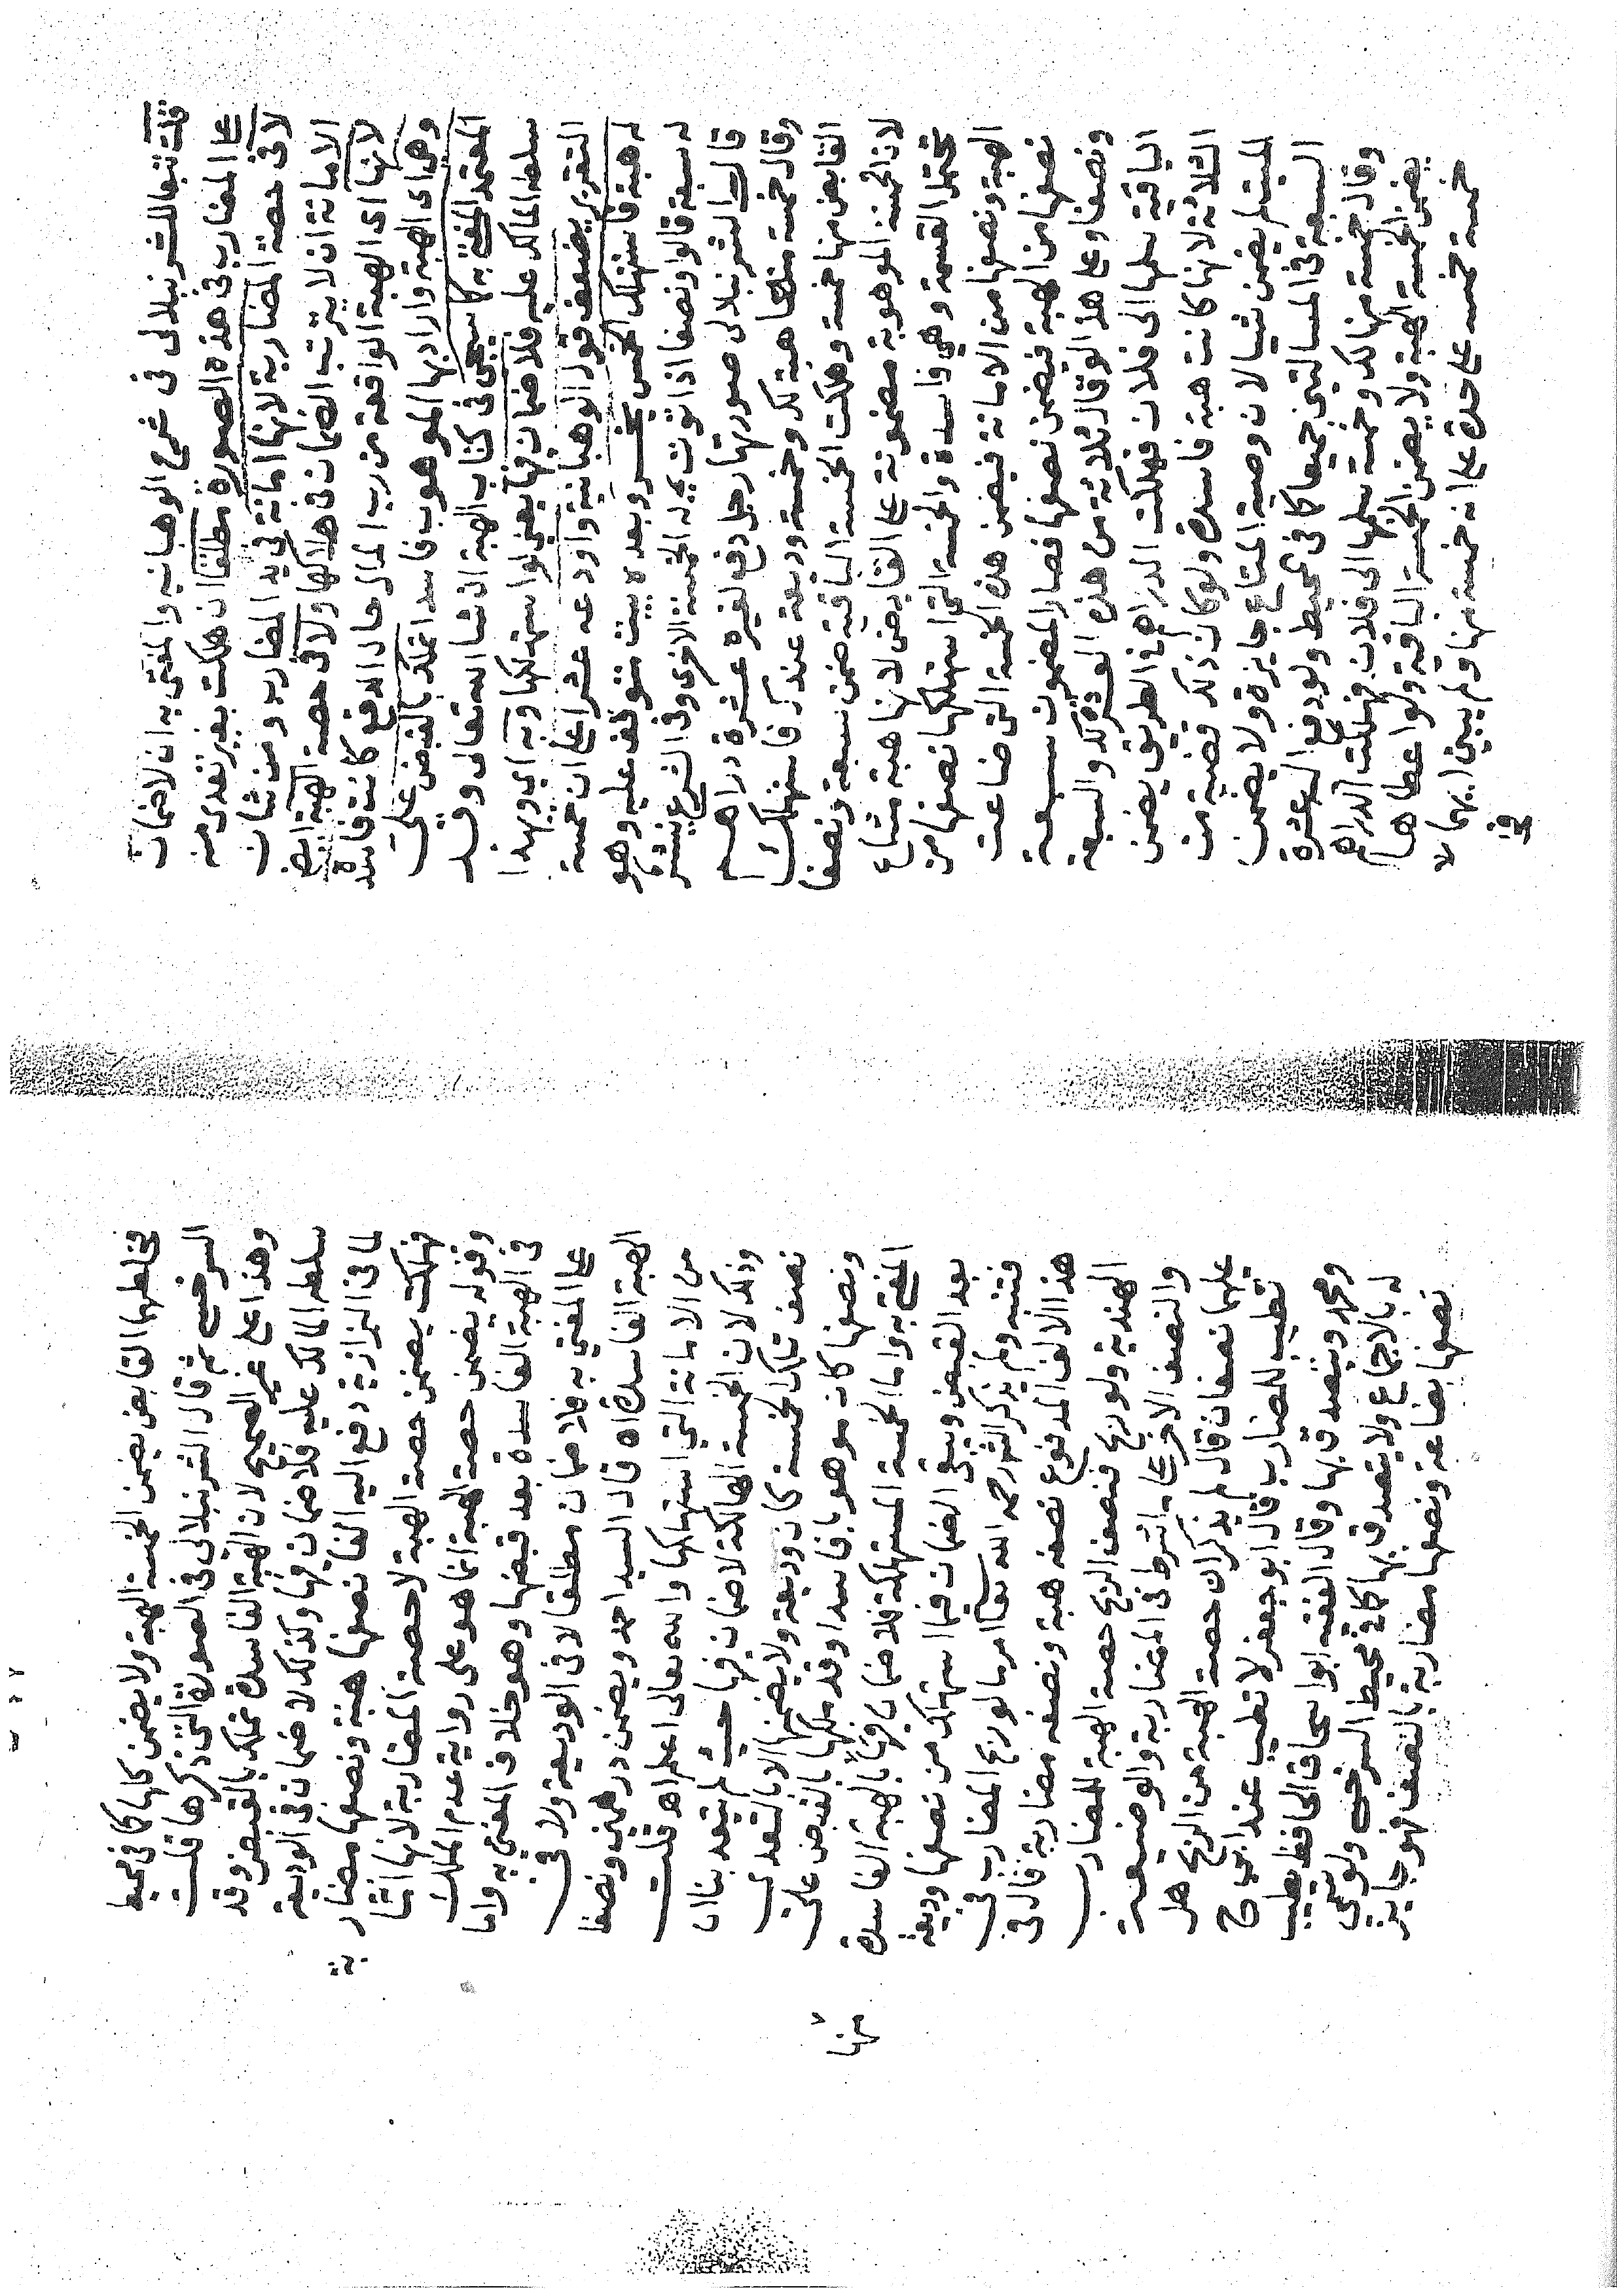 قلت تبعا للشرنبلالى فى شرح الوهبانيه والمفتى به ان لاضمان
على المضارب فى هذه الصورة مطلقا ان هلكت بغير تعدى منه
لافى حصة المضاربة لانها امانة فى يد المضارب ومن شان
الامانة ان لايترتب الضمان فى هلاكها ولافى حصة الهبة ايضا
لانها اى الهبة الواقعة من رب المال حال الدفع كانت فاسدة
وهى اى الهبة واراد بها الموهوب فاسدا تملك بالقبض على
المعتمد المفتى به كما سيجى فى كتاب الهبة ان شا الله تعالى وقد
سلطه المالك عليه فلاضمان فيها يعنى لو استهلكها وبه اى وبهذا
التقرير يضعف قول الوهبانية واودعه عشرا على ان خمسة
له هبة فاستهلك الخمس يخسر وبعده بيت متوقف عليه وهو
له سبعة قالوا ونصفا اذا ثوت به الخمسة الاخرى وفى الشرع ينشر
قال الشرنبلالى صورتها رجل دفع لغيره عشرة دراهم
وقال خمسة منها هبة لك وخمسة وديعة عندك فاستهلك
القابض منها خمسة وهلكت الخمسة الباقية ضمن سبعة ونصفا
لان الخمسة الموهوبة مضمونة على القابض لانها هبة مشاع
يحتمل القسمة وهى فاسدة والخمسة التى استهلكها نصفها من
الهبة ونصفها من الامانة فيضمن هذه الخمسة التى ضاعت
نصفها من الهبة فيضمن نصفها فصار المضمون سبعة
ونصفا وعلى هذا لو قال ثلاثة من هذه العشرة لك والسبعة
الباقية سلمها الى فلان فهلكت الدراهم فى الطريق يضمن
الثلاثة لانها كانت هبة فاسدة ولو كان ذلك قضية من
الميت لم يضمن شيا لان وصية المتاع جايزة ولايضمن
السبعة فى المسالتين جميعا كما فى المحيط ولو دفع اليه عشرة
وقال خمسة منها لك وخمسة سلمها الى فلان فهلكت الدراهم
يضمن الخمسة الهبة ولايضمن الخمسة الباقية ولو اعطاها
خمسة خمسة على حدة على انه خمسة منها ولم يبين ايهما لا
فخ
فخلطهما القابض يضمن الخمسة الهبة ولايضمن كلها كما فى محيط
السرخسى ثم قال الشرنبلالى فى الصورة التى ذكرها قلت
وهذا على غير الصحيح لان الهبة الفاسدة تملك بالقبض وقد
سلطه المالك عليه فلاضمان فيها وكذلك لاضمان فى الوديعة
لما فى البزازية دفع اليه الفا نصفها هبة ونصفها مضاربة
فهلكت يضمن حصة الهبة لاحصة المضاربة لانها امانة
وقوله يضمن حصة الهبة انما هو على رواية عدم الملك
فى الهبة الفاسدة بعد قبضها وهو خلاف المفتى به واما
على المفتى به فلاضمان مطلقا لافى الوديعة ولافى
الهبة الفاسدة اه قال السيد احمد ويضمن درهمين ونصفا
من الامانة التى استهلكها والله تعالى اعلم اه قلت
وذلك لان الخمسة الهالكة لاضمان فيها حيث لم يتعد بناان
نصف تلك الخمسة كان وديعة ولايضمنها الا بالتعدى
ونصفها كان موهوبا فاسدا وقد ملكها بالقبض على
المفتى به واما الخمسة المستهلكة فلاضمان فيها بالهبة الفاسدة
بعد القبض وبقى الضمان فيما استهلك من نصفها وديعة
فتنبه ولم يذكر الشارح رحمه الله تعالى امر مالو ربح المضارب فى
هذا الالف المدفوع نصفه هبة ونصفه مضاربة قال فى
الهندية ولو ربح فنصف الربح حصة الهبة للمضارب
والنصف الاخر على ما شرط فى المضاربة والوضيعة
عليهما نصفان قال لم يذكر ان حصة الهبة من الربح هل
تطيب للمضارب قال ابو جعفر لا تطيب عند ابى ح
ومحمد ويتصدق بها وقال الفقيه ابو اسحاق الحافظ يطيب
له بالاجماع ولايتصدق بها كما فى محيط السرخسى ولو سمى
نصفها بضاعة ونصفها مضاربة بالنصف فهو جايز
منها